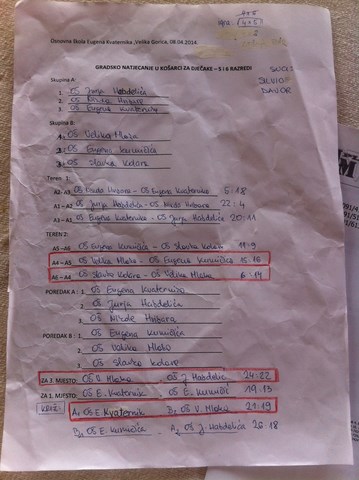 Osnovna škola Eugena Kvaternika, Velika Gorica, 08.04.2014.
GRADSKO NATJECANJE U KOŠARCI ZA DJEČAKE – 5 I 6 RAZREDI
SUCI
DAVOR
Skupina A:
1. OŠ Jurja Habdelića
2. OŠ Nikola Hribara
3. OŠ Eugena Kvaternika
Skupina B:
1. OŠ Velika Mlaka
2. OŠ Eugena Kumičića
3. OŠ Slavka Kolara
Teren 1:
A2–A3 OŠ Nikola Hribara - OŠ Eugena Kvaternika 5:18
A1–A2 OŠ Jurja Habdelića - OŠ Nikole Hribara 22:4
A3–A1 OŠ Eugena Kvaternika - OŠ Jurja Habdelića 20:11
TEREN 2:
A5–A6 OŠ Eugena Kumičića - OŠ Slavka Kolara 11:9
A4–A5 OŠ Velika Mlaka - OŠ Eugena Kumičića
A6–A4 OŠ Slavka Kolara - OŠ Velika Mlaka 6:14
POREDAK A: 1. OŠ Eugena Kvaternika
2. OŠ Jurja Habdelića
3. OŠ Nikole Hribara
POREDAK B: 1. OŠ Eugena Kumičića
2. OŠ Velika Mlaka
3. OŠ Slavka Kolara
ZA 3. MJESTO: OŠ V. Mlaka OŠ J. Habdelića 24:22
ZA 1. MJESTO: OŠ E. Kvaternik OŠ E. Kumičić 19:13
A1 OŠ E. Kvaternik B2 OŠ V. Mlaka 21:19
B1 OŠ E. Kumičića A2 OŠ J. Habdelića 26:18